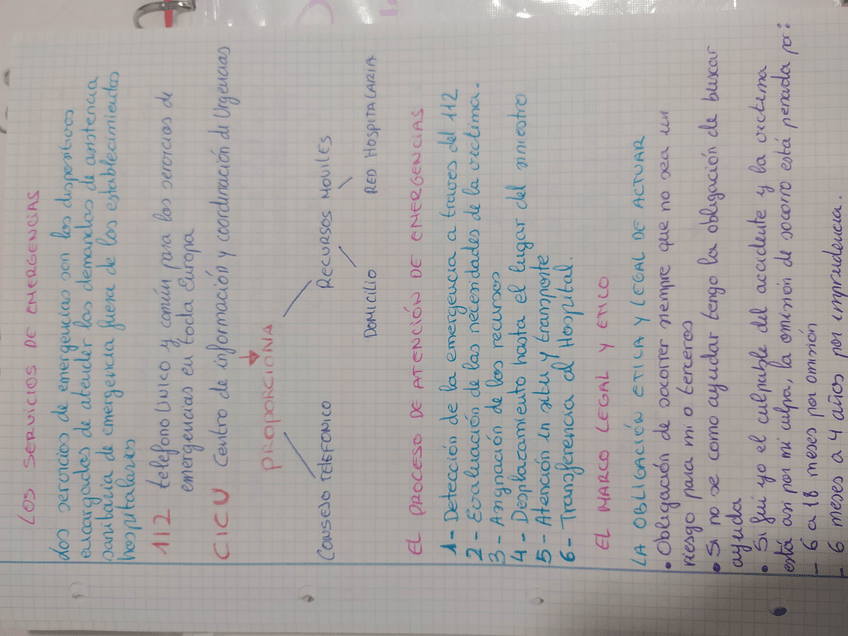 LOS SERVICIOS DE EMERGENCIAS
Los servicios de emergencias son los dispositivos
encargados de atender las demandas de asistencia
sanitaria de emergencia fuera de los establecimientos
hospitalarios
112 telefono Unico y común para los servicios de
emergencias en toda Europa
CICU Centro de información y coordinación di Urgencias
PROPORCIONA
CONSEJO TELEFONICO
RECURSOS MOVILES
DOMICILIO
RED HOSPITALARIA
EL PROCESO DE ATENCIÓN DE EMERGENCIAS
1- Detección de la emergencia a traves del 112
2- Evaluación de las necesidades de la victima.
3- Asignación de los recursos
4- Desplazamiento hasta el lugar del siniestro
5- Atención in situ y transporte
6- Transferencia al Hospital.
EL MARCO LEGAL Y ETICO
LA OBLIGACIÓN ETICA Y LEGAL DE ACTUAR
• Obligación de socorrer siempre que no sea un
riesgo para mi o terceros
• Si no se como ayudar tengo la obligación de buscar
ayuda
• Si fui yo el culpable del accidente y la victima
está asi por mi culpa, la omisión de socorro está penada por:
- 6 a 18 meses por omisión
- 6 meses a 4 años por imprudencia.